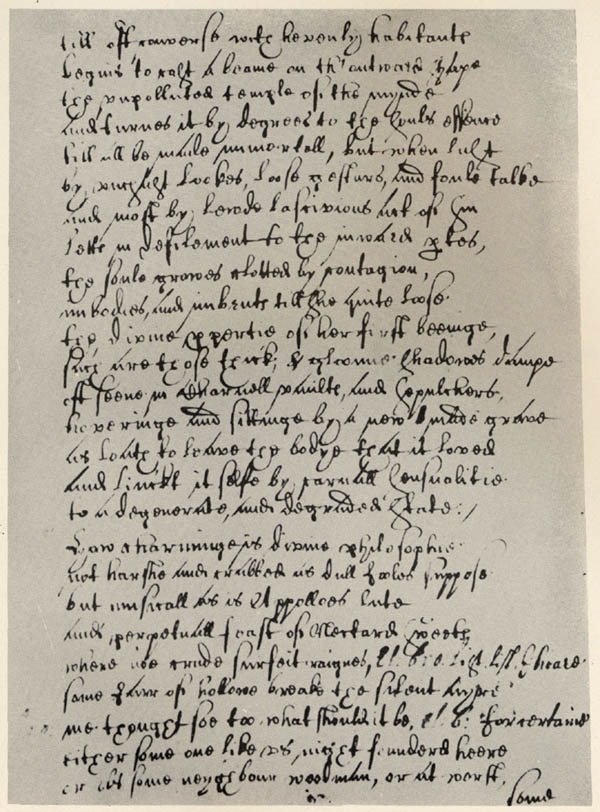 till oft converse with hevenly habitants
begins to cast a beame on th' outward shape
the unpolluted temple of the mynde
and turnes it by degrees to the souls essence
till all be made immortall, but when lust
by unchast lookes, loose gesturs, and foule talke
and most by lewde lascivious act of sin
letts in defilement to the inward ptes,
the soule growes clotted by contagion,
imbodies, and imbruts till she quite loose
the divine pptie of her first beeinge,
such are those thick, & gloomie shadowes dampe
oft seene in Charnell vaults, and sepulchers,
hoveringe and sittinge by a new made grave
as loath to leave the bodye that it loved
and linckt it selfe by carnall sensualitie
to a degenerate, and degraded state:/
how charminge is divine philosophie
not harshe and crabbed as dull fooles suppose
but musicall as is Appolloes lute
and perpetuall feast of Nectard sweets
where noe crude surfeit raignes, el: bro: list, list, I heare
some farr of hollowe breake the silent ayre
me thought soe too what should it be, el: b: for certaine
either some one like us, night founderd heere
or els some neyghbour woodman, or at worst,
some